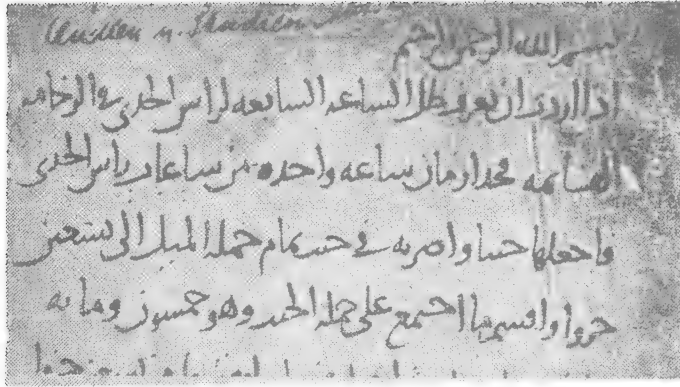 u. Studien
بسم الله الرحمن الرحيم
اذا اردت ان تعرف ظل الساعه السابعه لراس الجدى في الرخامه
القائمه فخذ ازمان ساعه واحده من ساعات راس الجدى
فاجعلها جيبا واضربه في جيب تمام جمله الميل الى تسعين
جزوا واقسم ما اجتمع على جمله الجيب وهو خمسون ومايه